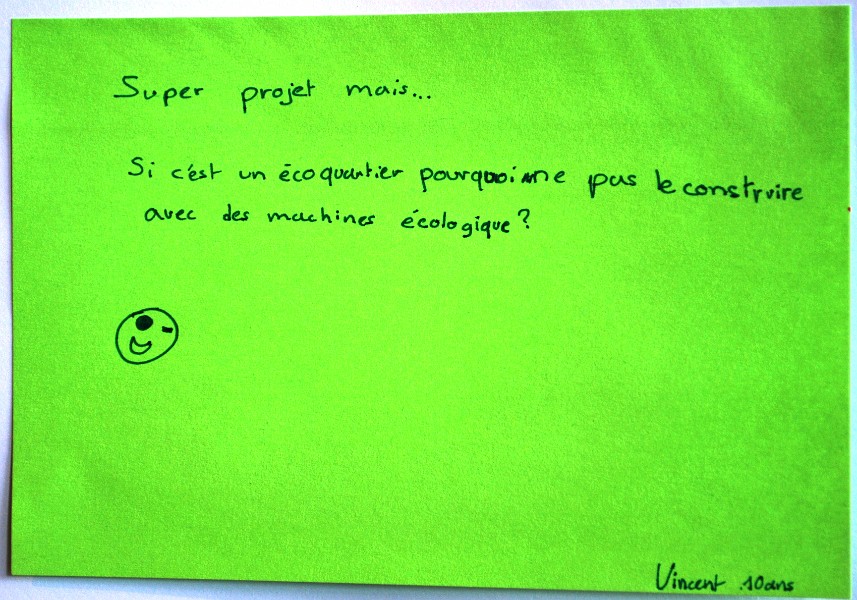 Super projet mais...
Si c'est un écoquartier pourquoi ne pas le construire
avec des machines écologique?
Vincent 10ans